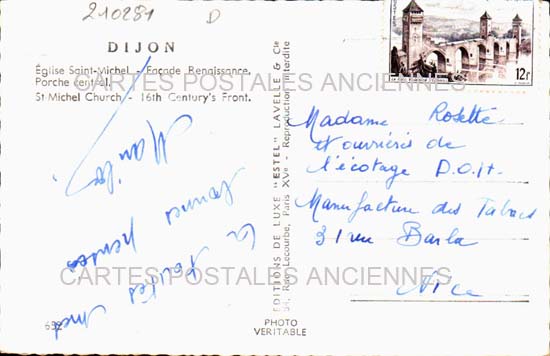 210281 D
DIJON
Église Saint-Michel - Façade Renaissance.
Porche central.
St-Michel Church - 16th Century's Front.
CARTES POSTALES ANCIENNES
12F
EDITIONS DE LUXE "ESTEL" LAVELLE & Cie
84, Rue Lecourbe, Paris XVe - Reproduction interdite
Madame Rosette
et ouvrières de
l'écotage D.O.I+.
Manufacture des Tabacs
31 rue Barla
Nice
pensées
CARTES POSTALES ANCIENNES
PHOTO
VERITABLE